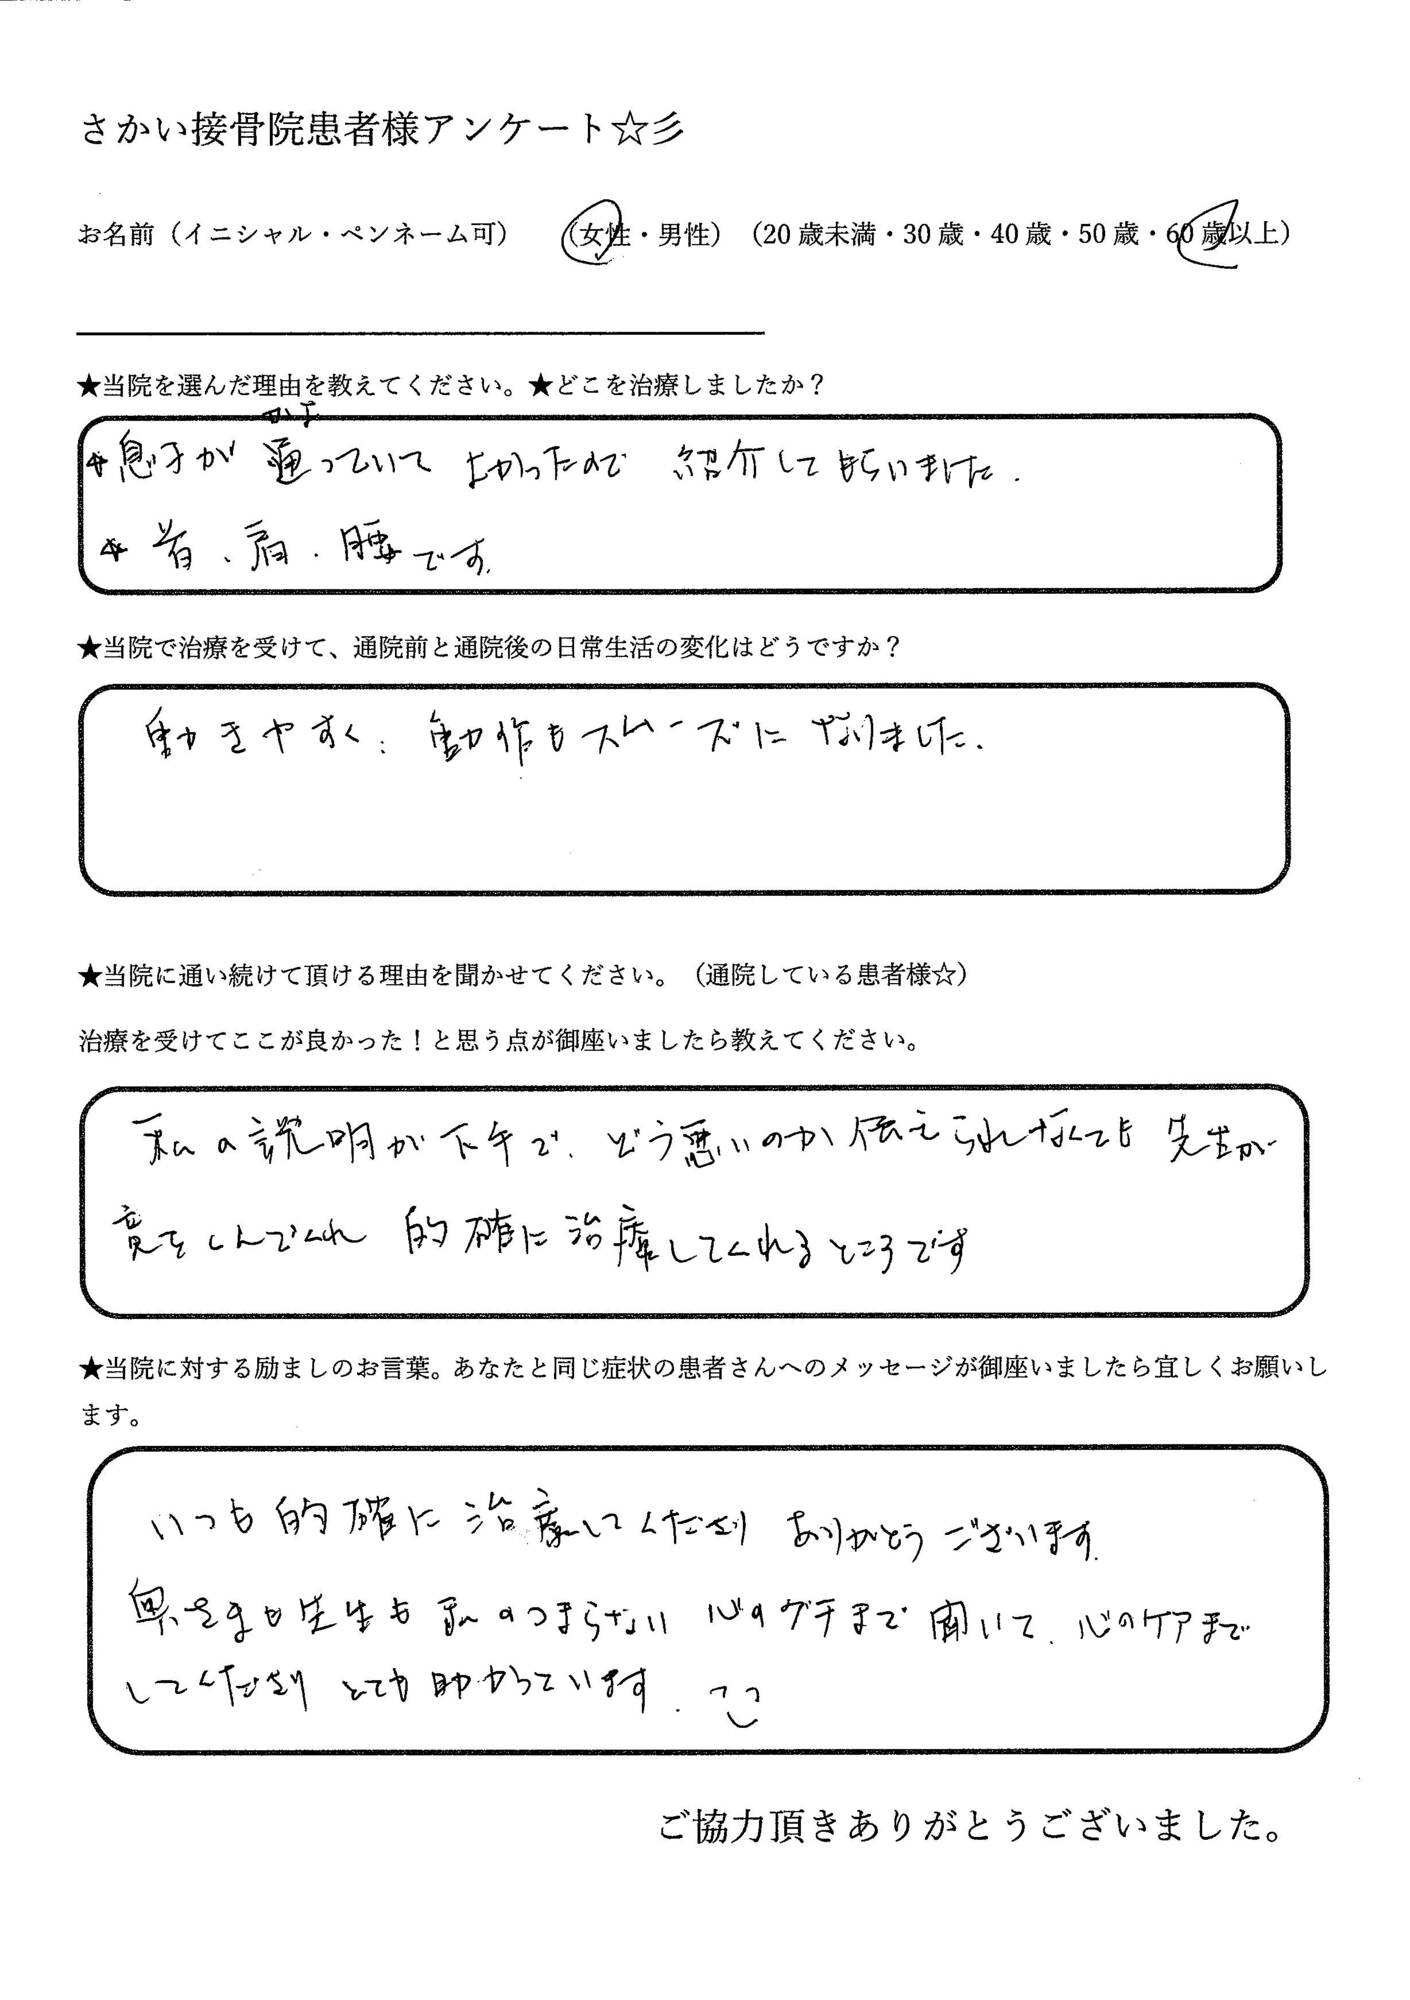 さかい接骨院患者様アンケート☆彡
お名前（イニシャル・ペンネーム可）　（女性・男性）（20歳未満・30歳・40歳・50歳・60歳以上）
★当院を選んだ理由を教えてください。★どこを治療しましたか？
かよ
★息子が通っていて よかったので 紹介してもらいました.
★首、肩、腰です.
★当院で治療を受けて、通院前と通院後の日常生活の変化はどうですか？
動きやすく、動作もスムーズになりました.
★当院に通い続けて頂ける理由を聞かせてください。（通院している患者様☆）
治療を受けてここが良かった！と思う点が御座いましたら教えてください。
私の説明が下手で、どう悪いのか伝えられなくても 先生が
意をくんでくれ 的確に治療してくれるところです
★当院に対する励ましのお言葉。あなたと同じ症状の患者さんへのメッセージが御座いましたら宜しくお願いし
ます。
いつも的確に治療してくださり ありがとうございます.
奥さまも先生も私のつまらない 心のグチまで聞いて、心のケアまで
してくださり とても助かっています.
ご協力頂きありがとうございました。